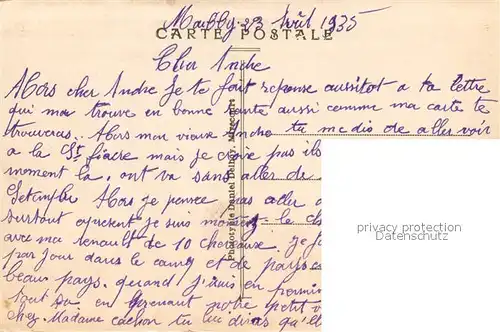 Mailly 23 Août 1935
CARTE POSTALE
Cher André
Alors cher André Je te fait reponse aussitot a ta lettre
qui ma trouve en bonne santé aussi comme ma carte te
trouveras. Alors mon vieux André tu me dis de aller voir
a la St fiacre mais je croire pas ils
moment la. ont va sans aller de
Setembre Alors je pensee pas aller
surtout apresent je suis le ch
avec ma renault de 10 chevaux. Je f
par jour dans le camp et de pays
beau pays. quand j'irais en permi
tout en prenant notre petit v
chez Madame cachon tu lui diras qu'el
Phototypie Daniel Delboy, Mirecourt
privacy protection
Datenschutz